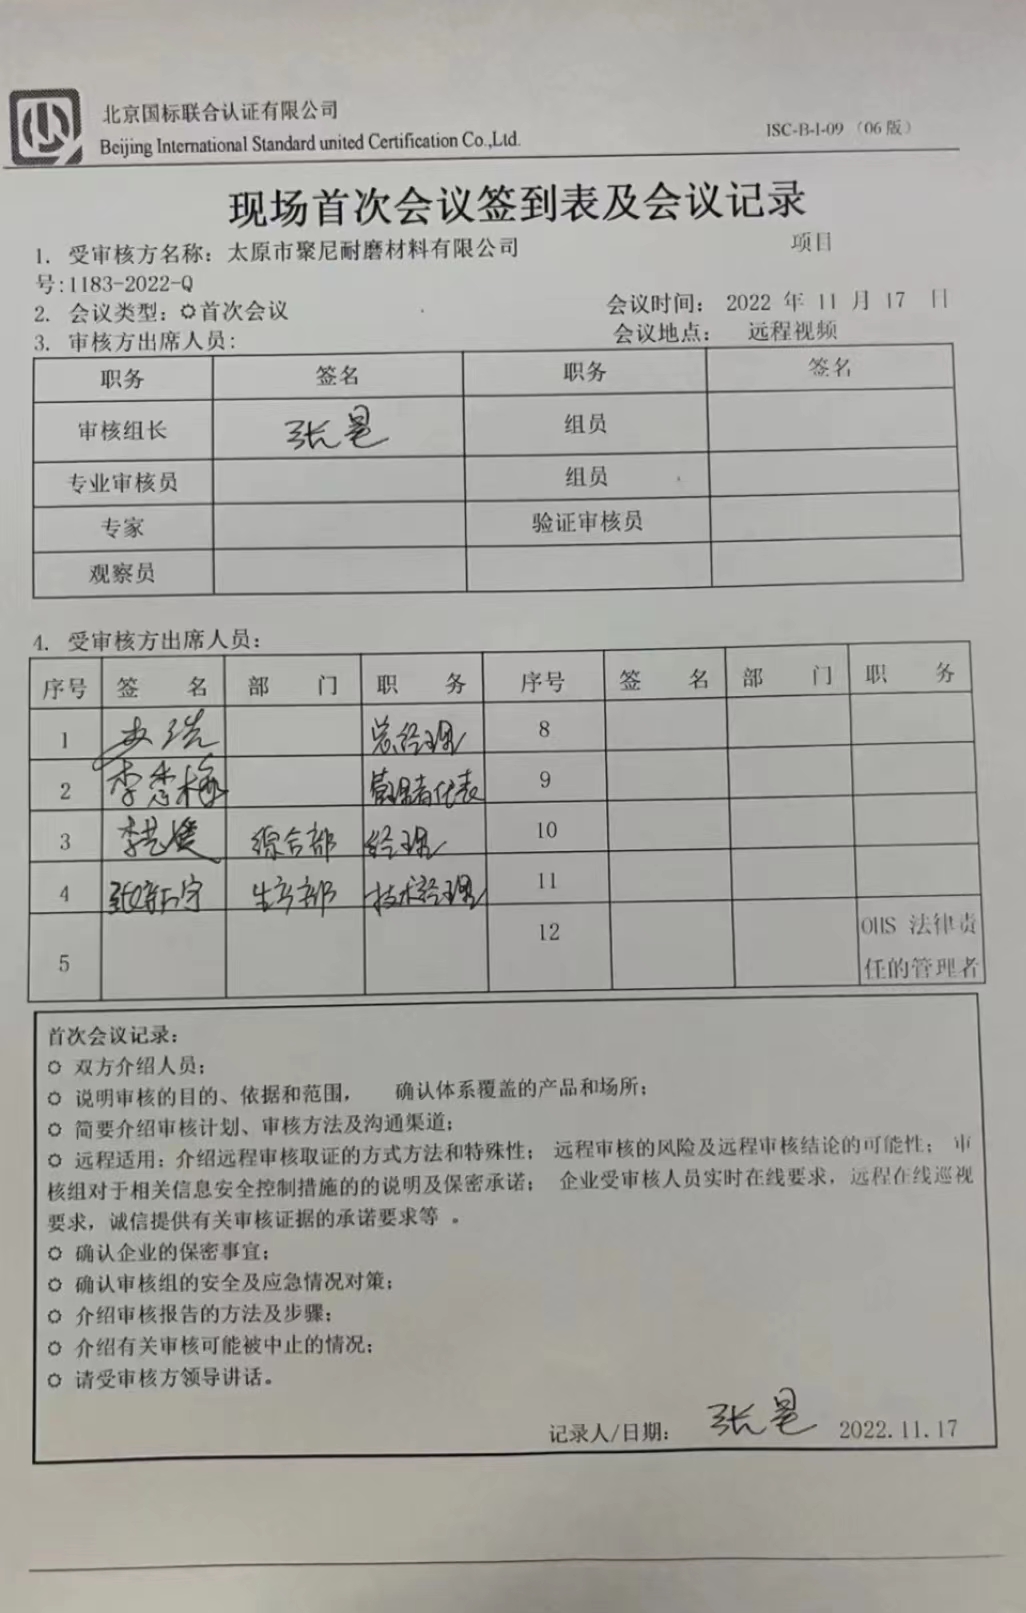 北京国标联合认证有限公司
Beijing International Standard united Certification Co.,Ltd.
ISC-B-I-09（06版）
现场首次会议签到表及会议记录
1. 受审核方名称：太原市聚尼耐磨材料有限公司 项目
号:1183-2022-Q
2. 会议类型：首次会议 会议时间： 2022 年 11 月 17 日
3. 审核方出席人员： 会议地点： 远程视频
职务 签名 职务 签名
审核组长 组员
专业审核员 组员
专家 验证审核员
观察员
4. 受审核方出席人员：
序号 签 名 部 门 职 务 序号 签 名 部 门 职 务
1 总经理 8
2 管理者代表 9
3 综合部 经理 10
4 生产部 技术经理 11
5 12 OHS 法律责
任的管理者
首次会议记录：
双方介绍人员；
说明审核的目的、依据和范围， 确认体系覆盖的产品和场所；
简要介绍审核计划、审核方法及沟通渠道；
远程适用：介绍远程审核取证的方式方法和特殊性； 远程审核的风险及远程审核结论的可能性； 审
核组对于相关信息安全控制措施的的说明及保密承诺； 企业受审核人员实时在线要求，远程在线巡视
要求，诚信提供有关审核证据的承诺要求等 。
确认企业的保密事宜；
确认审核组的安全及应急情况对策；
介绍审核报告的方法及步骤；
介绍有关审核可能被中止的情况；
请受审核方领导讲话。
记录人/日期： 2022.11.17